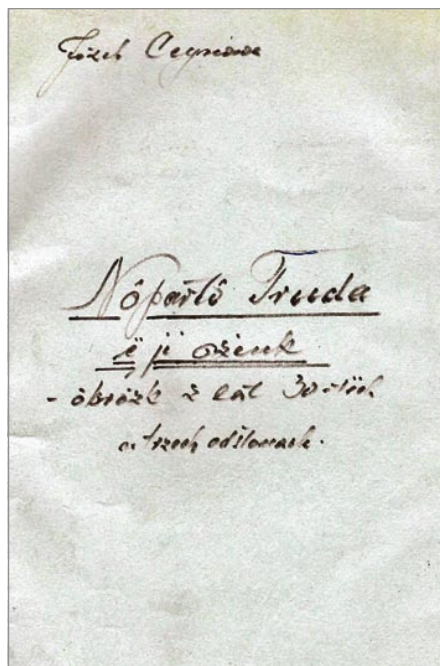 Józef Ceynowa
Nôpartô Truda
ë ji ożenk
- óbrôzk z lat 30-tëch
w trzech odsłonach.